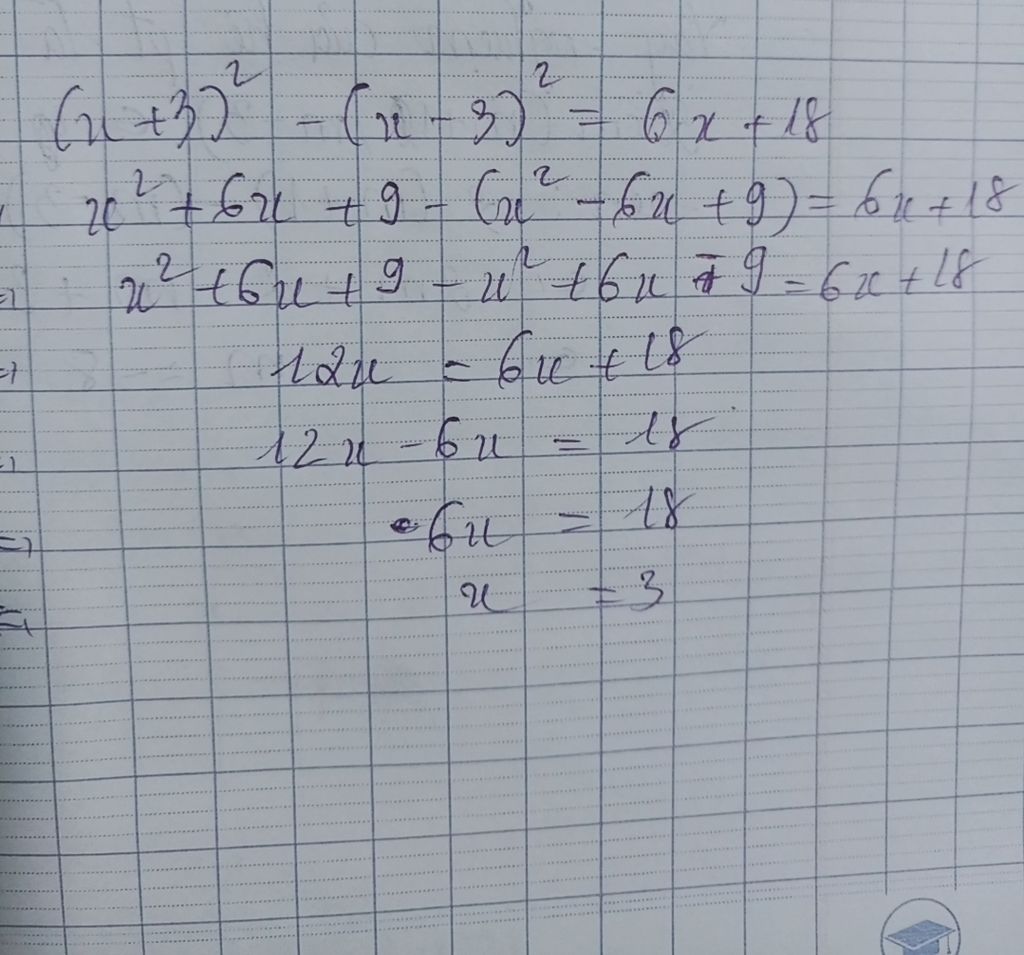 (x+3)² - (x-3)² = 6x + 18
x² + 6x + 9 - (x² - 6x + 9) = 6x + 18
=> x² + 6x + 9 - x² + 6x - 9 = 6x + 18
=> 12x = 6x + 18
=> 12x - 6x = 18
=> 6x = 18
=> x = 3